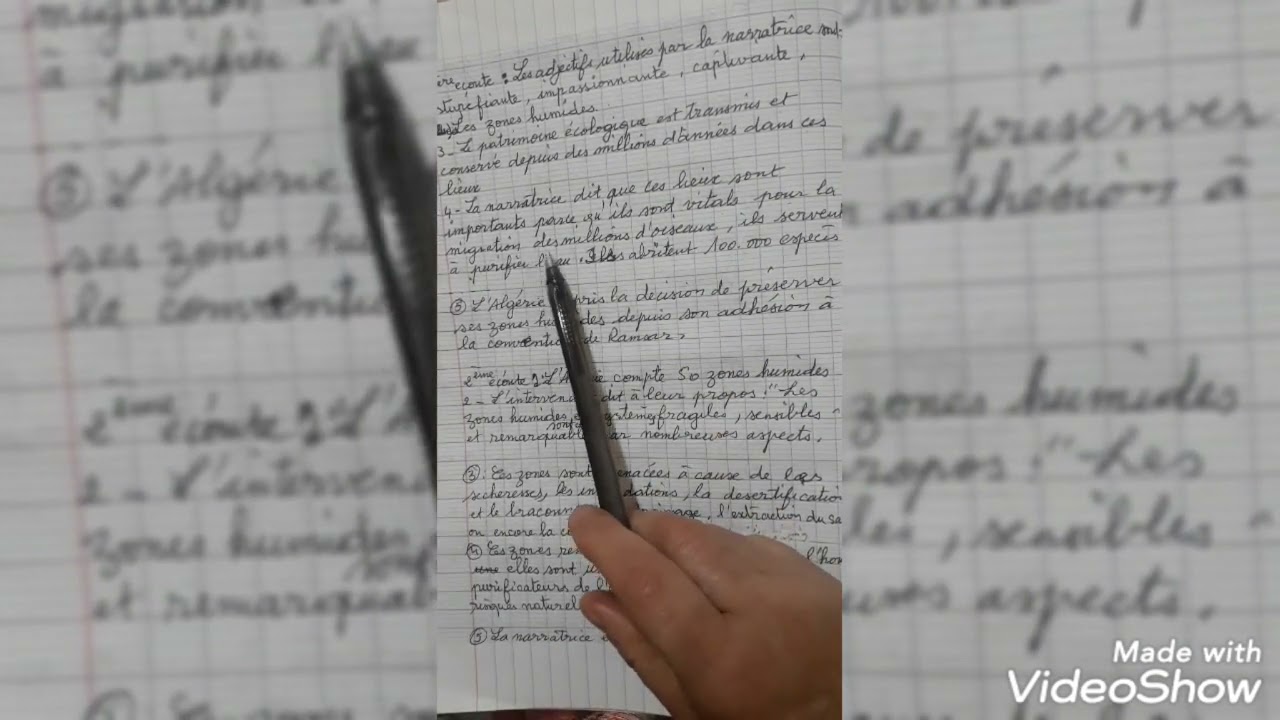 écoute : Les adjectifs utilisés par la narratrice
stupéfiante, impassionnante, captivante,
Les zones humides
3_ Le patrimoine écologique est transmis et
conservé depuis des millions d'années dans ces
lieux
4_ La narratrice dit que ces lieux sont
importants parce qu'ils sont vitals pour la
migration des millions d'oiseaux, ils servent
à purifier l'eau. Ils abritent 100.000 espècés
⑤ L'Algérie pris la décision de préserver
ses zones humides depuis son adhésion à
la convention de Ramsar,
2ème écoute 1 L'A compte 50 zones humides
2_ L'intervenant dit à leur propos : "Les
zones humides sont fragiles, sensibles
et remarquables par nombreuses aspects.
③. Ces zones sont menacées à cause de las
sécheresses, les inondations, la désertification
et le braconnage, l'extraction du sa
on encore la
④ Ces zones l'hom
elles sont
purificateurs de l'
naturel
⑤ La narratrice
Made with
VideoShow